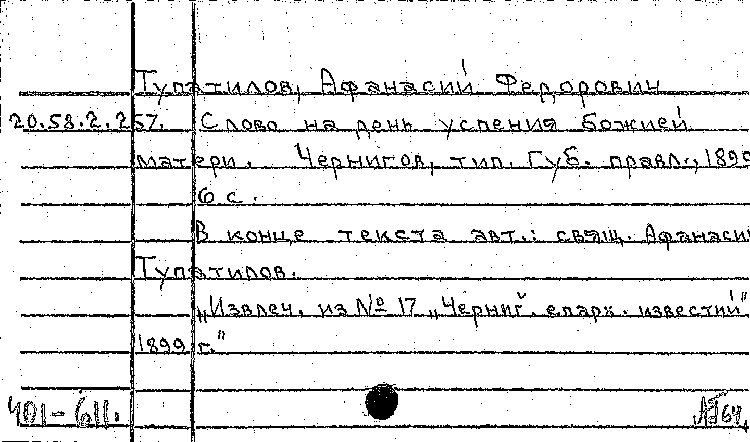 Тупатилов, Афанасий Федорович
20.58.2.257. Слово на день успения божией
матери. Чернигов, тип. Губ. правл., 1899
6 с.
В конце текста авт.: свящ. Афанасий
Тупатилов.
„Извлеч. из № 17 „Черниг. епарх. известий"
1899 г."
401-611.